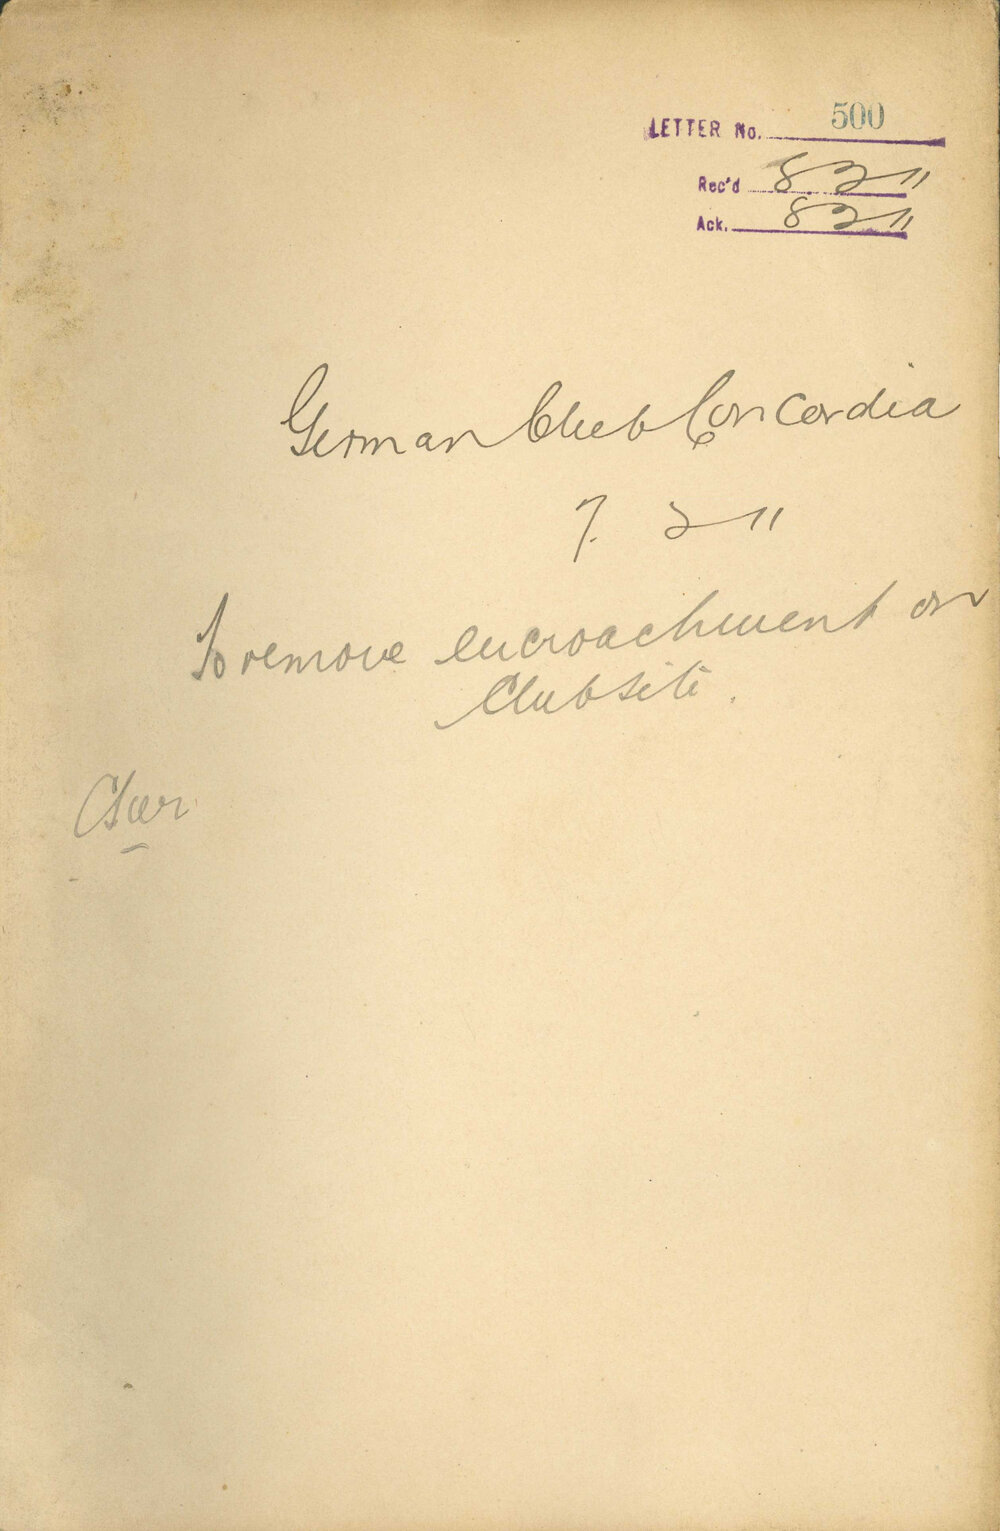 LETTER No. 500
Rec'd 8. 2 11
Ack. 8 2 11
German Club Concordia
7. 2 11
To remove encroachment on
Clubsite.